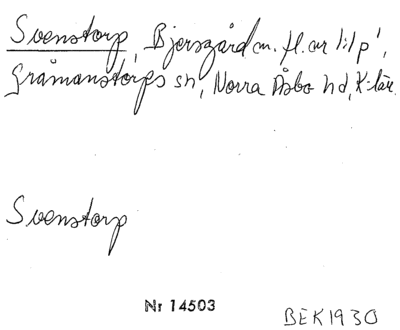 Svenstorp, Bjersgård m. fl. ur lilp',
Gråmanstorps sn, Norra Åsbo hd, K-län
Svenstorp
Nr 14503
BEK1930